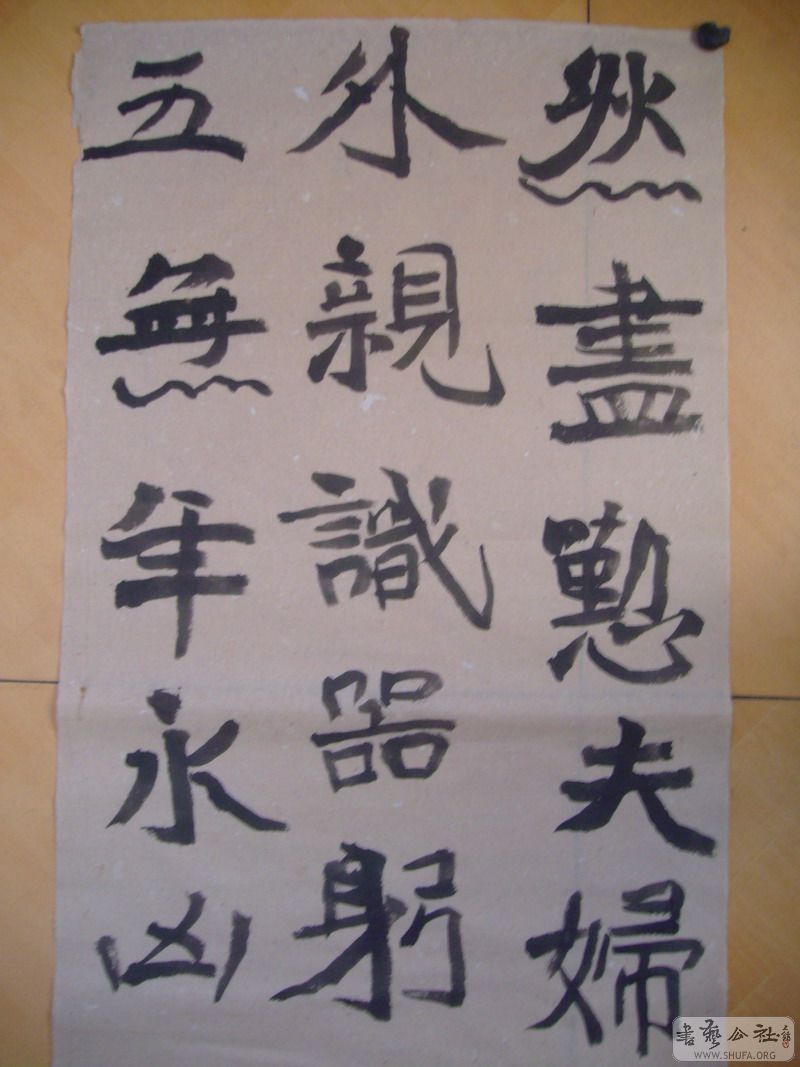 然盡懃夫婦
外親識器躬
五無年永凶
書藝公社
WWW.SHUFA.ORG